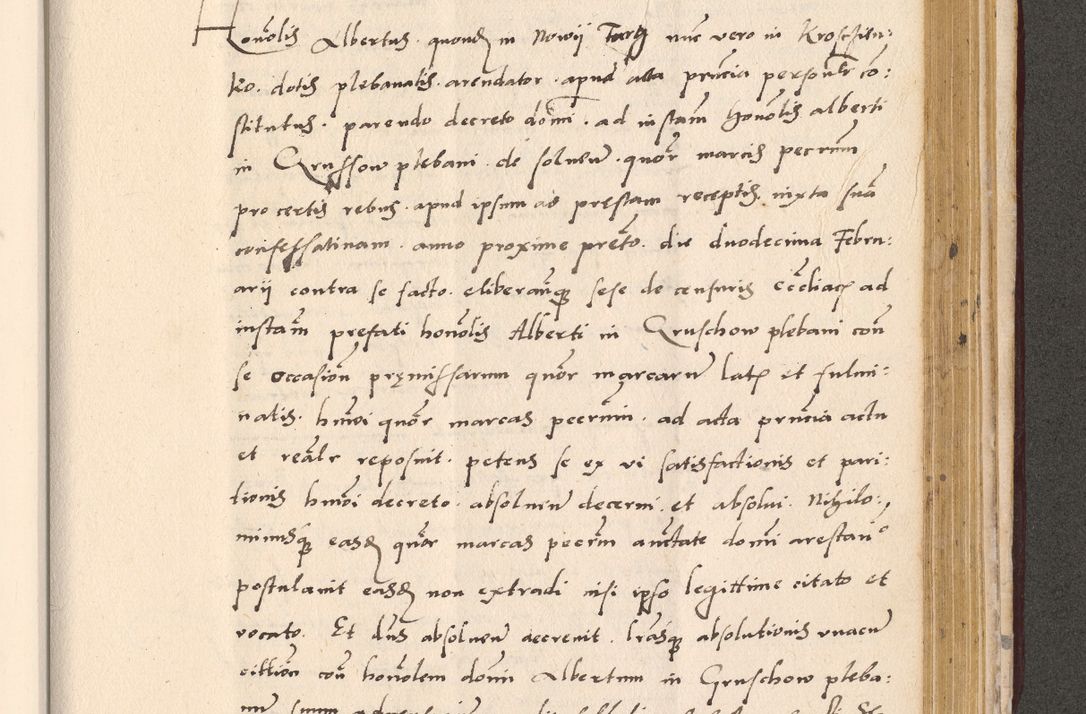 Honorlis Albertus. quondꝫ in Nowij Targ nuc vero in Kroschien:
ko. dotis plebanatis. arendator. apud acta pr̃ncia personlr co:
stitutus. parendo decreto domi. ad instam honorlis alberti
in Grussow plebani. de soluen. quor marcis pecrum
pro certis rebus. apud ipsum ad prestam receptis. iuxta suã
confessatinam. anno proxime preto. die duodecima Febru:
arij contra se facto. eliberanq sese de censuris ecclias ad
instam prefati honorlis Alberti in Gruschow plebani con
se occasion premissarum quor marcarum lat et fulmi:
natis. hmoi quor marcas pecrum. ad acta pr̃ncia actu
et realr reposuit. petens se ex vi satisfactionis et pari:
tionis hmoi decreto. absoluen decerni et absolui. Nihilo:
minusq easdꝫ quor marcas pecrm auctate domi arestari
postulauit easdꝫ non extradi nisi ipso legittime citato et
vocato. Et dns absoluen decreuit. lrasq absolutionis vnacu
cittion con honorlem domi Albertum in Gruschow pleba: